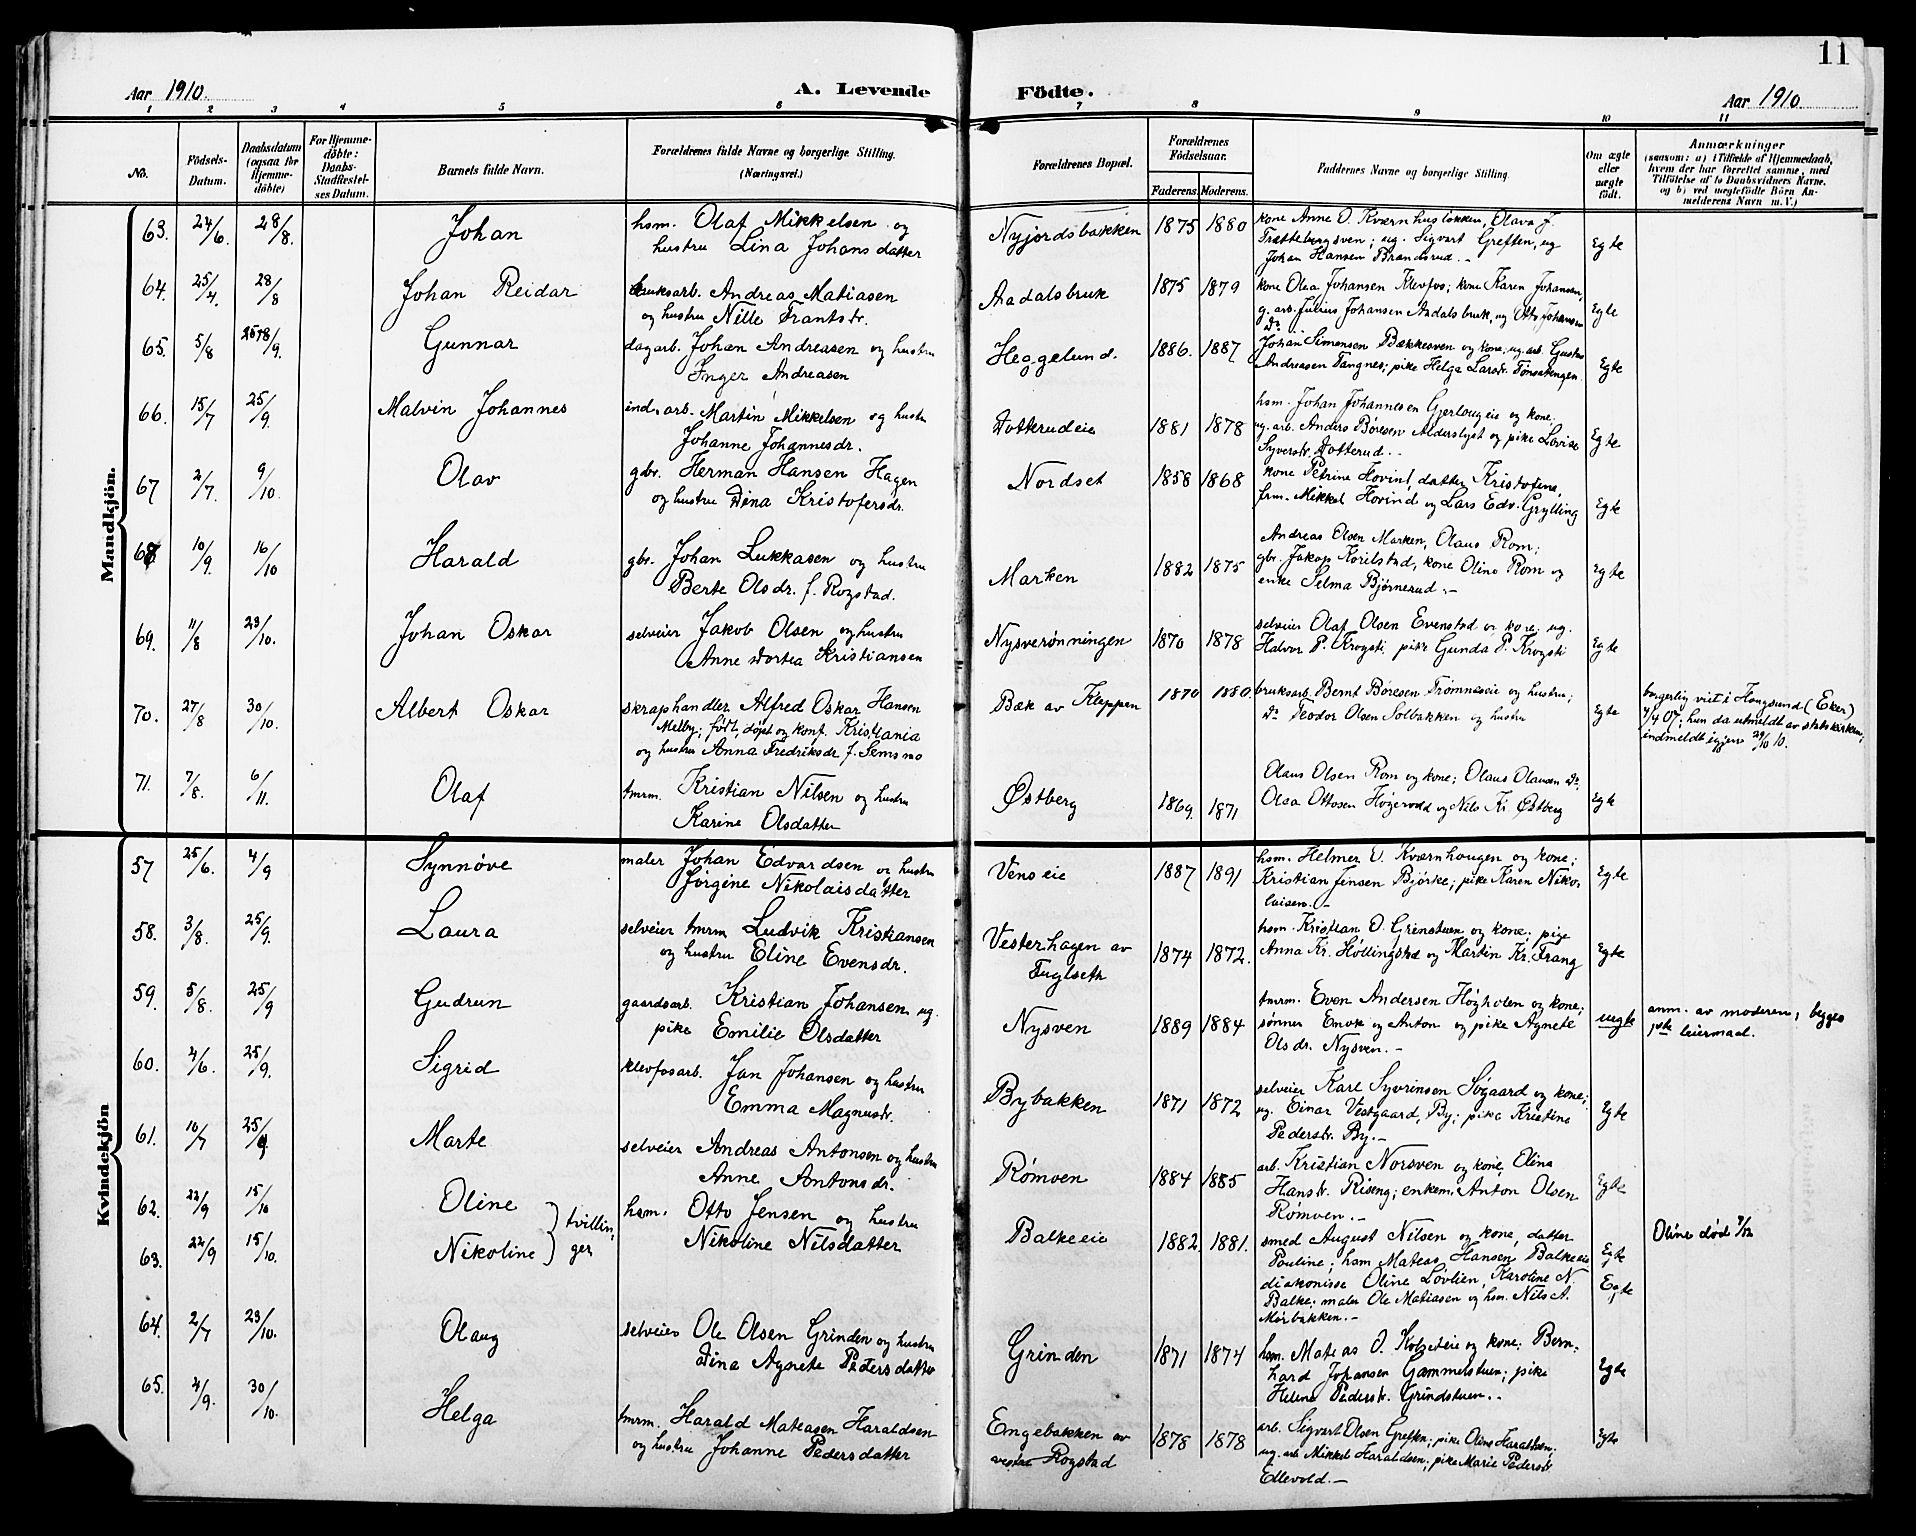 11
Aar 1910.
A. Levende
Födte.
Aar 1910
1 2 3 4 5 6 7 8 9 10 11
No.
Födsels-
Datum.
Daabsdatum
(ogsaa for
Hjemme-
döbte)
For Hjemme-
döbte:
Daabs-
Stadfæstel-
ses Datum.
Barnets fulde Navn.
Forældrenes fulde Navne og borgerlige Stilling.
(Næringsvei.)
Forældrenes Bopæl.
Forældrenes
Födselsaar.
Faderens. Moderens.
Faddernes Navne og borgerlige Stilling.
Om ægte
eller
uægte
födt.
Anmærkninger
(saasom: a) i Tilfælde af Hjemmedaab,
hvem der har forrettet samme, med
Tilföielse af to Daabsvidners Navne.
og b) ved uegtefödte Börn An-
melderens Navn m. V.)
Mandkjön.
63. 24/6. 28/8. Johan hsm. Olaf Mikkelsen og
hustru Lina Johansdatter
Nyjordsbakken 1875 1880 kone Anne O. Kværnhusløkken, Olava J.
Trættebergsven; ug. Sigvart Greften, ug
Johan Hansen Brandsrud. -
Egte
64. 25/4. 28/8 Johan Reidar bruksarb. Andreas Matiasen
og hustru Nille Frantsdr.
Aadalsbruk 1875 1879 kone Olea Johansen Klevfos; kone Karen Johansen,
g. arb. Julius Johansen Aadalsbruk, ug Otto Johansen
Do
Egte
65. 5/8 18/9. Gunnar dagarb. Johan Andreasen og hustru
Inger Andreasen
Heggelund. 1886. 1887 Johan Simensen Bækkesven og kone, ug. arb. Gustav
Andreasen Tangnes; pike Helga Larsdr. Tønsetengen.
Egte
66. 15/7 25/9. Malvin Johannes ind. arb. Martin Mikkelsen og hustru
Johanne Johannesdr.
Dotterudeie 1881 1878 hsm. Johan Johannesen Gjerlaugeie og kone.
ug. arb. Anders Børesen Alderslyst og pike Lovise
Syversdr. Dotterud. -
Egte
67 2/7. 9/10. Olav gbr. Herman Hansen Hagen
og hustru Dina Kristofersdr.
Nordset 1858 1868 kone Petrine Hovind, datter Kristofine,
frm. Mikkel Hovind og Lars Edv. Grylling
Egte
68 10/9. 16/10 Harald gbr. Johan Lukkasen og hustru
Berte Olsdr. f. Rogstad.
Marken 1882 1875 Andreas Olsen Marken, Olaus Rom;
gbr. Jakob Korilstad, kone Oline Rom og
enke Selma Bjørnerud. -
Egte
69. 11/8 23/10. Johan Oskar selveier Jakob Olsen og hustru
Anne Dortea Kristiansen
Nysverønningen 1870 1878 selveier Olaf Olsen Evenstad og kone; ug.
Halvor P. Krogsti pike Gunda P. Krogsti
Egte
70. 27/8 30/10. Albert Oskar skraphandler Alfred Oskar Hansen
Melby; født, døpt og konf. Kristiania
og hustru Anna Fredriksdr f. Semsmo
Bæk av Kleppen 1870 1880. bruksarb. Bernt Børesen Trømnæseie og hustru;
Do Teodor Olsen Solbakken og hustru
Egte
borgerlig viet i Hougsund (Eker)
4/4 07; hun da utmeldt av statskirken;
indmeldt igjen 29/10 10.
71. 7/8. 6/11. Olaf tmrm. Kristian Nilsen og hustru
Karine Olsdatter
Østberg 1869. 1871 Olaus Olsen Rom og kone; Olaus Olausen Do.
Olea Ottosen Høgevold og Nils Kr. Østberg
Egte
Kvindekjön
57 25/6. 4/9 Synnøve maler Johan Edvardsen og hustru
Jørgine Nikolaisdatter
Venseie 1887 1891 hsm. Helmer O. Kværnhaugen og kone;
Kristian Jensen Bjørke; pike Karen Niko-
laisen. -
Egte
58. 3/8. 25/9. Laura selveier tmrm Ludvik Kristiansen
og hustru Eline Evensdr.
Vesterhagen av
Fuglseth
1874 1872. hsm. Kristian O. Grinstuen og kone; pige
Anna Kr. Høllingstad og Martin Kr. Frang
Egte
59. 5/8. 25/9 Gudrun gaardsarb. Kristian Johansen, ug.
pike Emilie Olsdatter
Nysven 1889 1884 tmrm. Even Andersen Høgholen og kone;
sønner Emok og Anton og pike Agnete
Olsdr. Nysven. -
uegte
anm. av moderen; begges
1ste leiermaal.
60. 4/6. 25/9. Sigrid Klevfosarb. Jan Johansen og hustru
Emma Magnusdr.
Bybakken 1871 1872 selveier Karl Syvrinsen Søgaard og kone;
ug. Einar Vestgaard, By; pike Kristine
Pedersdr. By. -
Egte
61. 10/7 25/9 Marte selveier Andreas Antonsen og hustru
Anne Antonsdr.
Rømven 1884 1885 arb. Kristian Norsven og kone Olina
Hansdr. Riseng; enkem. Anton Olsen
Rømven. -
Egte
62. 22/9 15/10 Oline } tvillin-
63. 22/9 15/10. Nikoline } ger
hsm. Otto Jensen og hustru
Nikoline Nilsdatter
Balkeeie 1882. 1881. smed August Nilsen og kone, datter
Pauline; hsm Mateas Hansen Balkeeie
diakonisse Oline Løvlien, Karoline N.
Balke; maler Ole Matiasen og hsm. Nils A.
Mørbakken. -
Egte
Egte
Oline død 7/12
64. 2/7 23/10. Olaug selveier Ole Olsen Grinden og hustru
Dina Agnete Pedersdatter
Grinden 1871 1874 hsm. Mateas O. Kolseteie og kone; Bern-
hard Johansen Gammelstuen; pike
Helene Pedersdr. Grindstuen. -
Egte
65. 4/9. 30/10. Helga tmrm. Harald Mateasen Haraldsen
og hustru Johanne Pedersdatter
Engebakken av
vestre Rogstad
1878 1878 arb. Sigvart Olsen Greften; pike Oline Haraldsen;
ug. arb Mikkel Haraldsen; pike Marie Pedersdr.
Ellevold. -
Egte